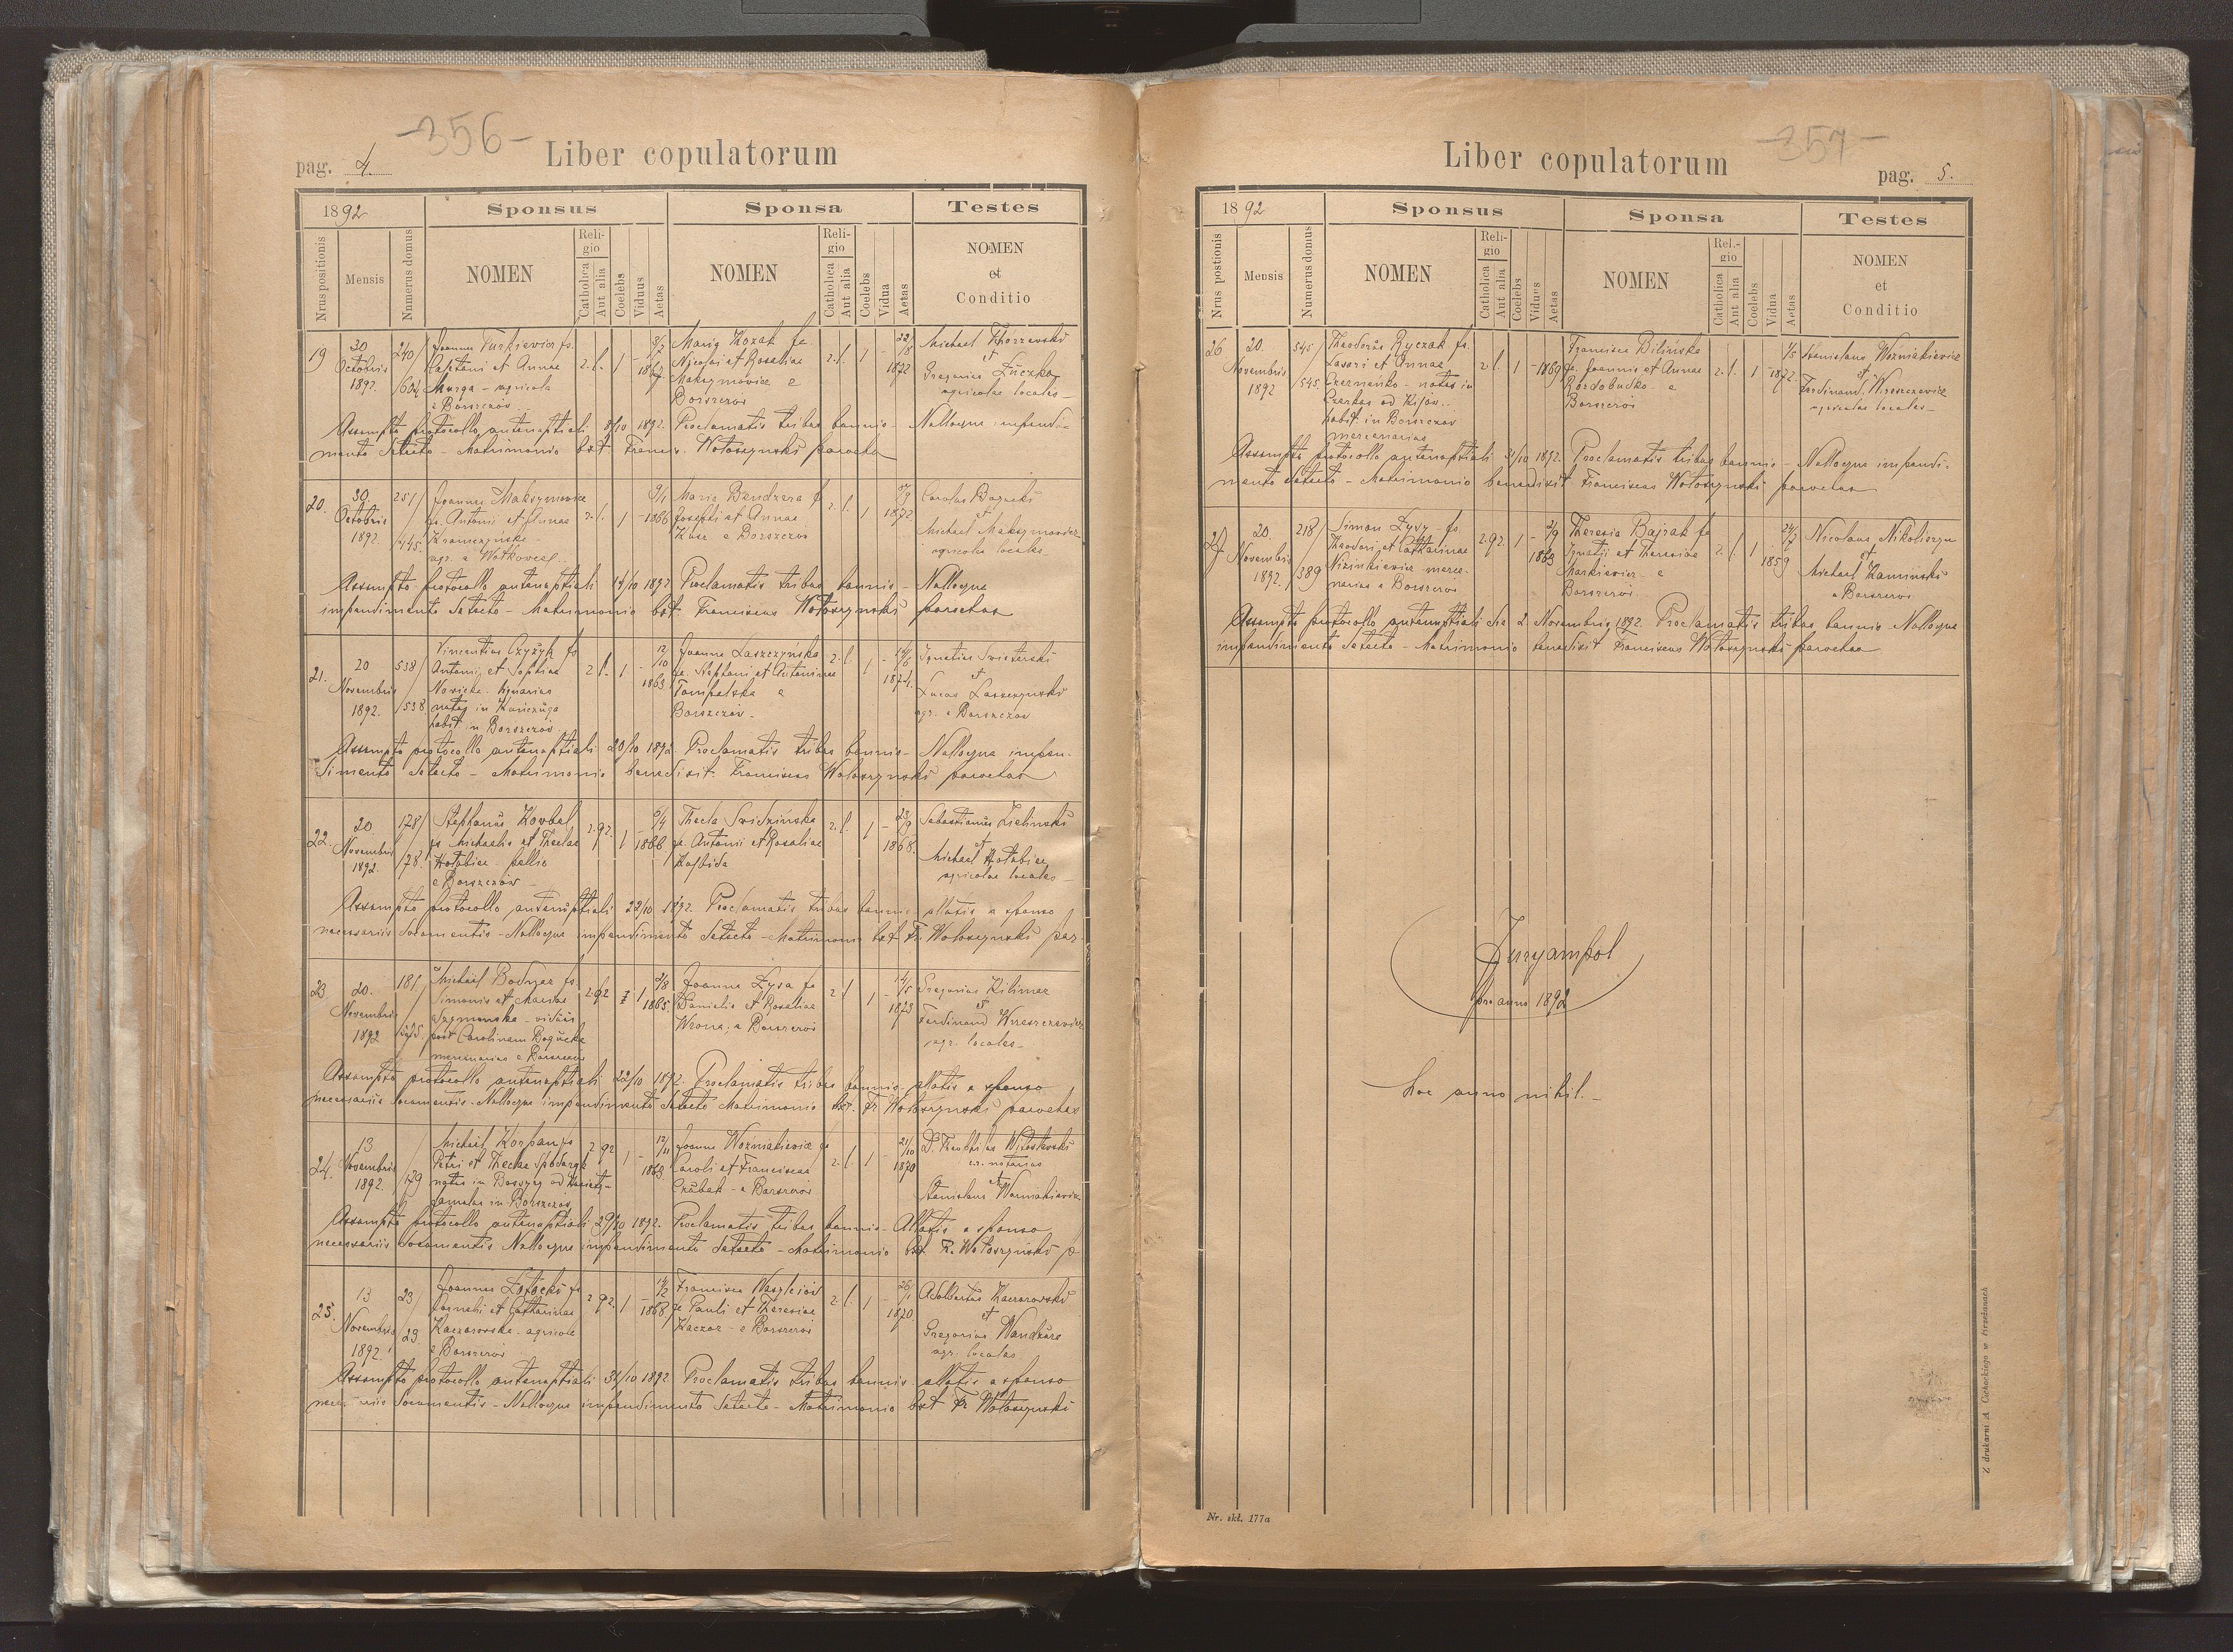 -356-
pag. 4.
Liber copulatorum
1892
Sponsus
Sponsa
Testes
Nrus positionis
Mensis
Numerus domus
NOMEN
Religio
Catholica
Aut alia
Coelebs
Viduus
Aetas
NOMEN
Religio
Catholica
Aut alia
Coelebs
Vidua
Aetas
NOMEN
et
Conditio
19
30
Octobris
1892.
240/
/604
Joannes Turkiewicz fs.
Cajetani et Annae
Murga - agricola
e Borszczów
r. l. 1 -
3/7
1867
Maria Kozak fa
Nicolai et Rosaliae
Maksymowicz e
Borszczów
r. l. 1 -
22/8
1872
Michael
et
Gregorius Łuczka
agricolae locales
Assumpto protocollo antenuptiali 8/10 1892. Proclamatis tribus bannis - Nulloque impendi-
mento detecto - Matrimonio bxt. Francis. Wołoszynski parochus
20.
30.
Octobris
1892.
251/
/445.
Joannes Maksymowicz
fs. Antonii et Annae
Kramczynska
agr. e Wołkowce
r. l. 1 -
9/1
1866
Maria Bendzera f.
Josephi et Annae
Kusz e Borszczów
r. l. 1
1872.
Carolus Bogucki
et
Michael Maksymowicz
agricolae locales
Assumpto protocollo antenuptiali 14/10 1892 Proclamatis tribus bannis - Nulloque
impendimento detecto - Matrimonio bxt. Franciscus Wołoszynski parochus
21.
20
Novembris
1892.
538/
/538
Vincentius Czyżyk fs
Antonii et Sophiae
Nosicka -
natus in Kańczuga
habit. in Borszczów
r. l. 1 -
12/10
1863
Joanna Laszczynska
fa. Stephani et Antoninae
Tompalska e
Borszczów -
r. l. 1 -
14/6
1874.
Ignatius Swisterski
et
Lucas Laszczynski
agr. e Borszczów
Assumpto protocollo antenuptiali 20/10 1892 Proclamatis tribus bannis - Nulloque impen-
dimento detecto - Matrimonio benedixit. Franciscus Wołoszynski parochus
22.
20
Novembris
1892.
178/
/78.
Stephanus Korbel
fs Michaelis et Theclae
Hołobicz - pellio
e Borszczów -
r. gr. 1 -
6/4
1866
Thecla Svidzińska
fa. Antonii et Rosaliae
r. l. 1 -
23/9
1868.
Sebastianus Zieliński
et
Michael Hołobicz
agricolae locales -
Assumpto protocollo antenuptiali 22/10 1892. Proclamatis tribus bannis allatis a sponso
necessariis documentis - Nulloque impendimento detecto - Matrimonio bxt Fr. Wołoszynski par.
23
20.
Novembris
1892
181.
Michael Bodnar fs.
Simonis et Mariae
Szymanska - viduus
post Carolinam Bogucka
mercenarius e Borszczów
r. gr. - 1
21/8
1865.
Joanna Lysa fa
Danielis et Rosaliae
Wrona. e Borszczów
r. l. 1 -
14/5
1873
Gregorius Kilimar
et
Ferdinand Wrzeszczewicz
agr. locales -
Assumpto protocollo antenuptiali 22/10 1892. Proclamatis tribus bannis - allatis a sponso
necessariis documentis - Nulloque impendimento detecto Matrimonio bxt. Fr Wołoszynski parochus
24.
13
Novembris
1892.
/179
Michael Korpan fs
Petri et Theclae
natus in
famulus in Borszczów
r. gr. 1 -
12/11
1863
Joanna Woźniakiewicz fa
Caroli et Franciscae
Czubak - e Borszczów
r. l. 1 -
21/10
1870
D. Theophilus Witosławski
c.r. notarius
et
Stanislaus Woźniakiewicz
Assumpto protocollo antenuptiali 29/10 1892. Proclamatis tribus bannis - Allatis a sponso
necessariis documentis Nulloque impendimento detecto - Matrimonio bxt F. Wołoszynski p
25.
13
Novembris
1892
23/
29
Joannes Łotocki fs
Cornelii et Catharinae
Kaczarowska - agricola
e Borszczów
r. gr. 1 -
14/2
1868
Francisca Wasyleiow
fa Pauli et Theresiae
Kaczor - e Borszczów
r. l. 1 -
26/1
1870
Adalbertus Kaczorowski
et
Gregorius Wandzura
agr. locales
Assumpto protocollo antenuptiali 31/10 1892. Proclamatis tribus bannis allatis a sponso
necessariis documentis - Nulloque impendimento detecto - Matrimonio bxt Fr Wołoszynski
-357-
Liber copulatorum
pag. 5.
1892
Sponsus
Sponsa
Testes
Nrus postionis
Mensis
Numerus domus
NOMEN
Religio
Catholica
Aut alia
Coelebs
Viduus
Aetas
NOMEN
Rel.-gio
Catholica
Aut alia
Coelebs
Vidua
Aetas
NOMEN
et
Conditio
26
20.
Novembris
1892
545/
/545
Theodorus Ryczak fs.
Lazari et Annae
Czerneńko - natus in
Czerkas ad Kijów.
habit. in Borszczów
mercenarius
r l. 1 - 1869
Francisca Bilińska
fa. Joannis et Annae
Rozdobudko - e
Borszczów
r. l. 1 -
1/5
1872.
Stanislaus Woźniakiewicz
et
Ferdinand Wrzeszczewicz
agricolae locales -
Assumpto protocollo antenuptiali 31/10 1892. Proclamatis tribus bannis - Nulloque impendi-
mento detecto - Matrimonio benedixit Franciscus Wołoszynski parochus
27
20.
Novembris
1892.
218/
/389
Simon Lysy - fs.
Theodori et Catharinae
Nizinkiewicz merce-
narius e Borszczów
r. gr. 1 -
2/9
1863
Theresia Bajrak fa
Ignatii et Theresiae
Markiewicz - e
Borszczów
r. l. 1
24/7
1859
Nicolaus Nikoliszyn
et
Michael Kaminski
e Borszczów
Assumpto protocollo antenuptiali die 2 Novembris 1892. Proclamatis tribus bannis - Nulloque
impendimento detecto - Matrimonio benedixit Franciscus Wołoszynski parochus
Juryampol
pro anno 1892
hoc anno nihil. -
Nr. skł. 177a
Z drukarni A. Cichockiego w Brzeżanach